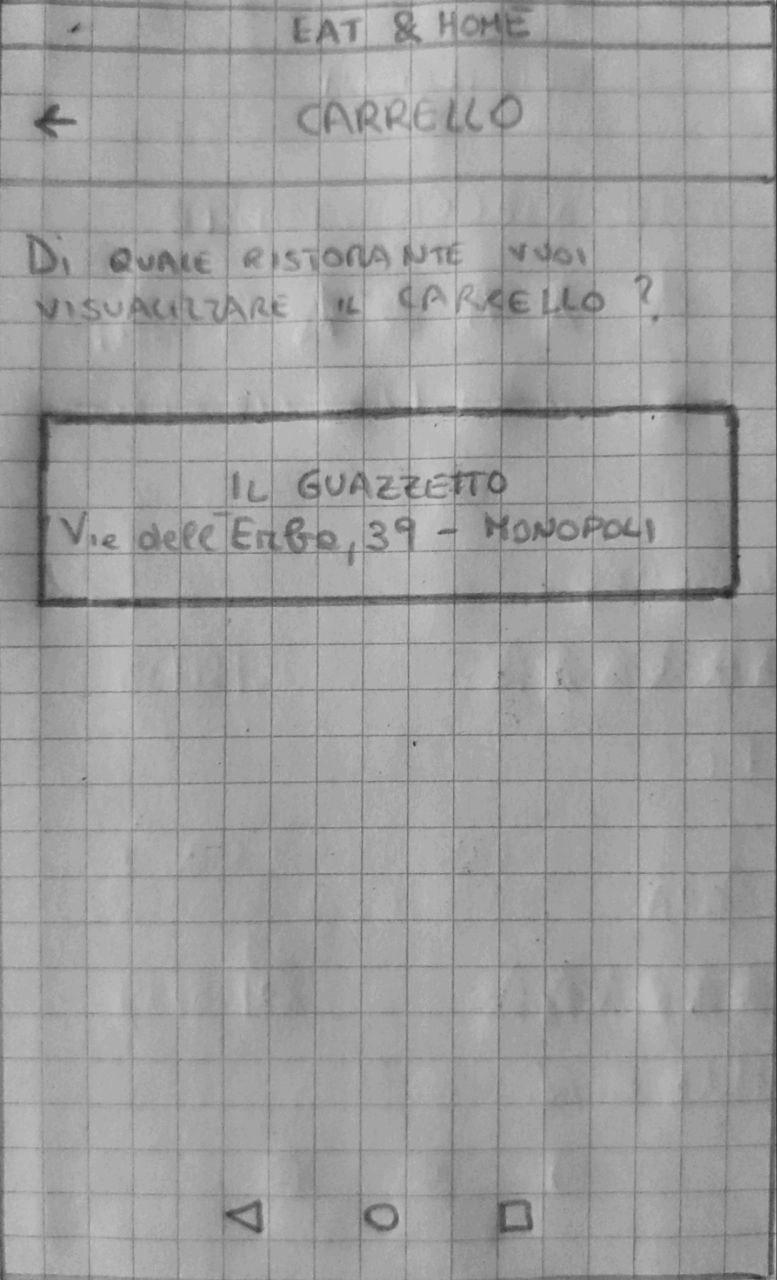 EAT & HOME
← CARRELLO
Di QUALE RISTORANTE VUOI
VISUALIZZARE IL CARRELLO ?
IL GUAZZETTO
Via dell'Erba, 39 - MONOPOLI